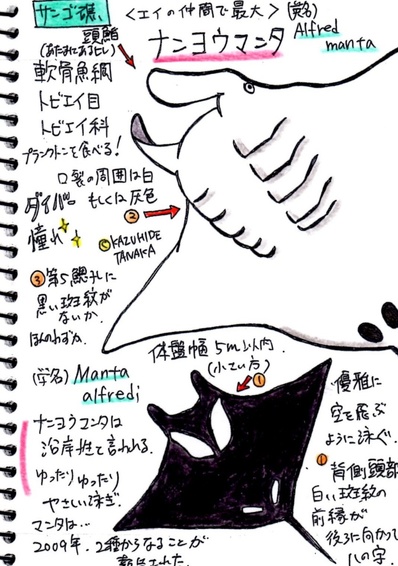 サンゴ礁、
＜エイの仲間で最大＞
(英名)
ナンヨウマンタ
Alfred
manta
頭鰭
(あたまにあるヒレ)
軟骨魚綱
トビエイ目
トビエイ科
プランクトンを食べる!
口裂の周囲は白
もしくは灰色
②
ダイバー
憧れ
© KAZUHIDE
TANAKA
③ 第5鰓孔に
黒い斑紋が
ないか、
ほんのわずか。
体盤幅 5m以内
(小さい方)
①
(学名) Manta
alfredi
ナンヨウマンタは
沿岸性と言われる。
ゆったり ゆったり
やさしい泳ぎ。
マンタは…
2009年、2種からなることが
優雅に
空を飛ぶ
ように泳ぐ。
① 背側頭部
白い斑紋の
前縁が
後ろに向かって
ハの字。